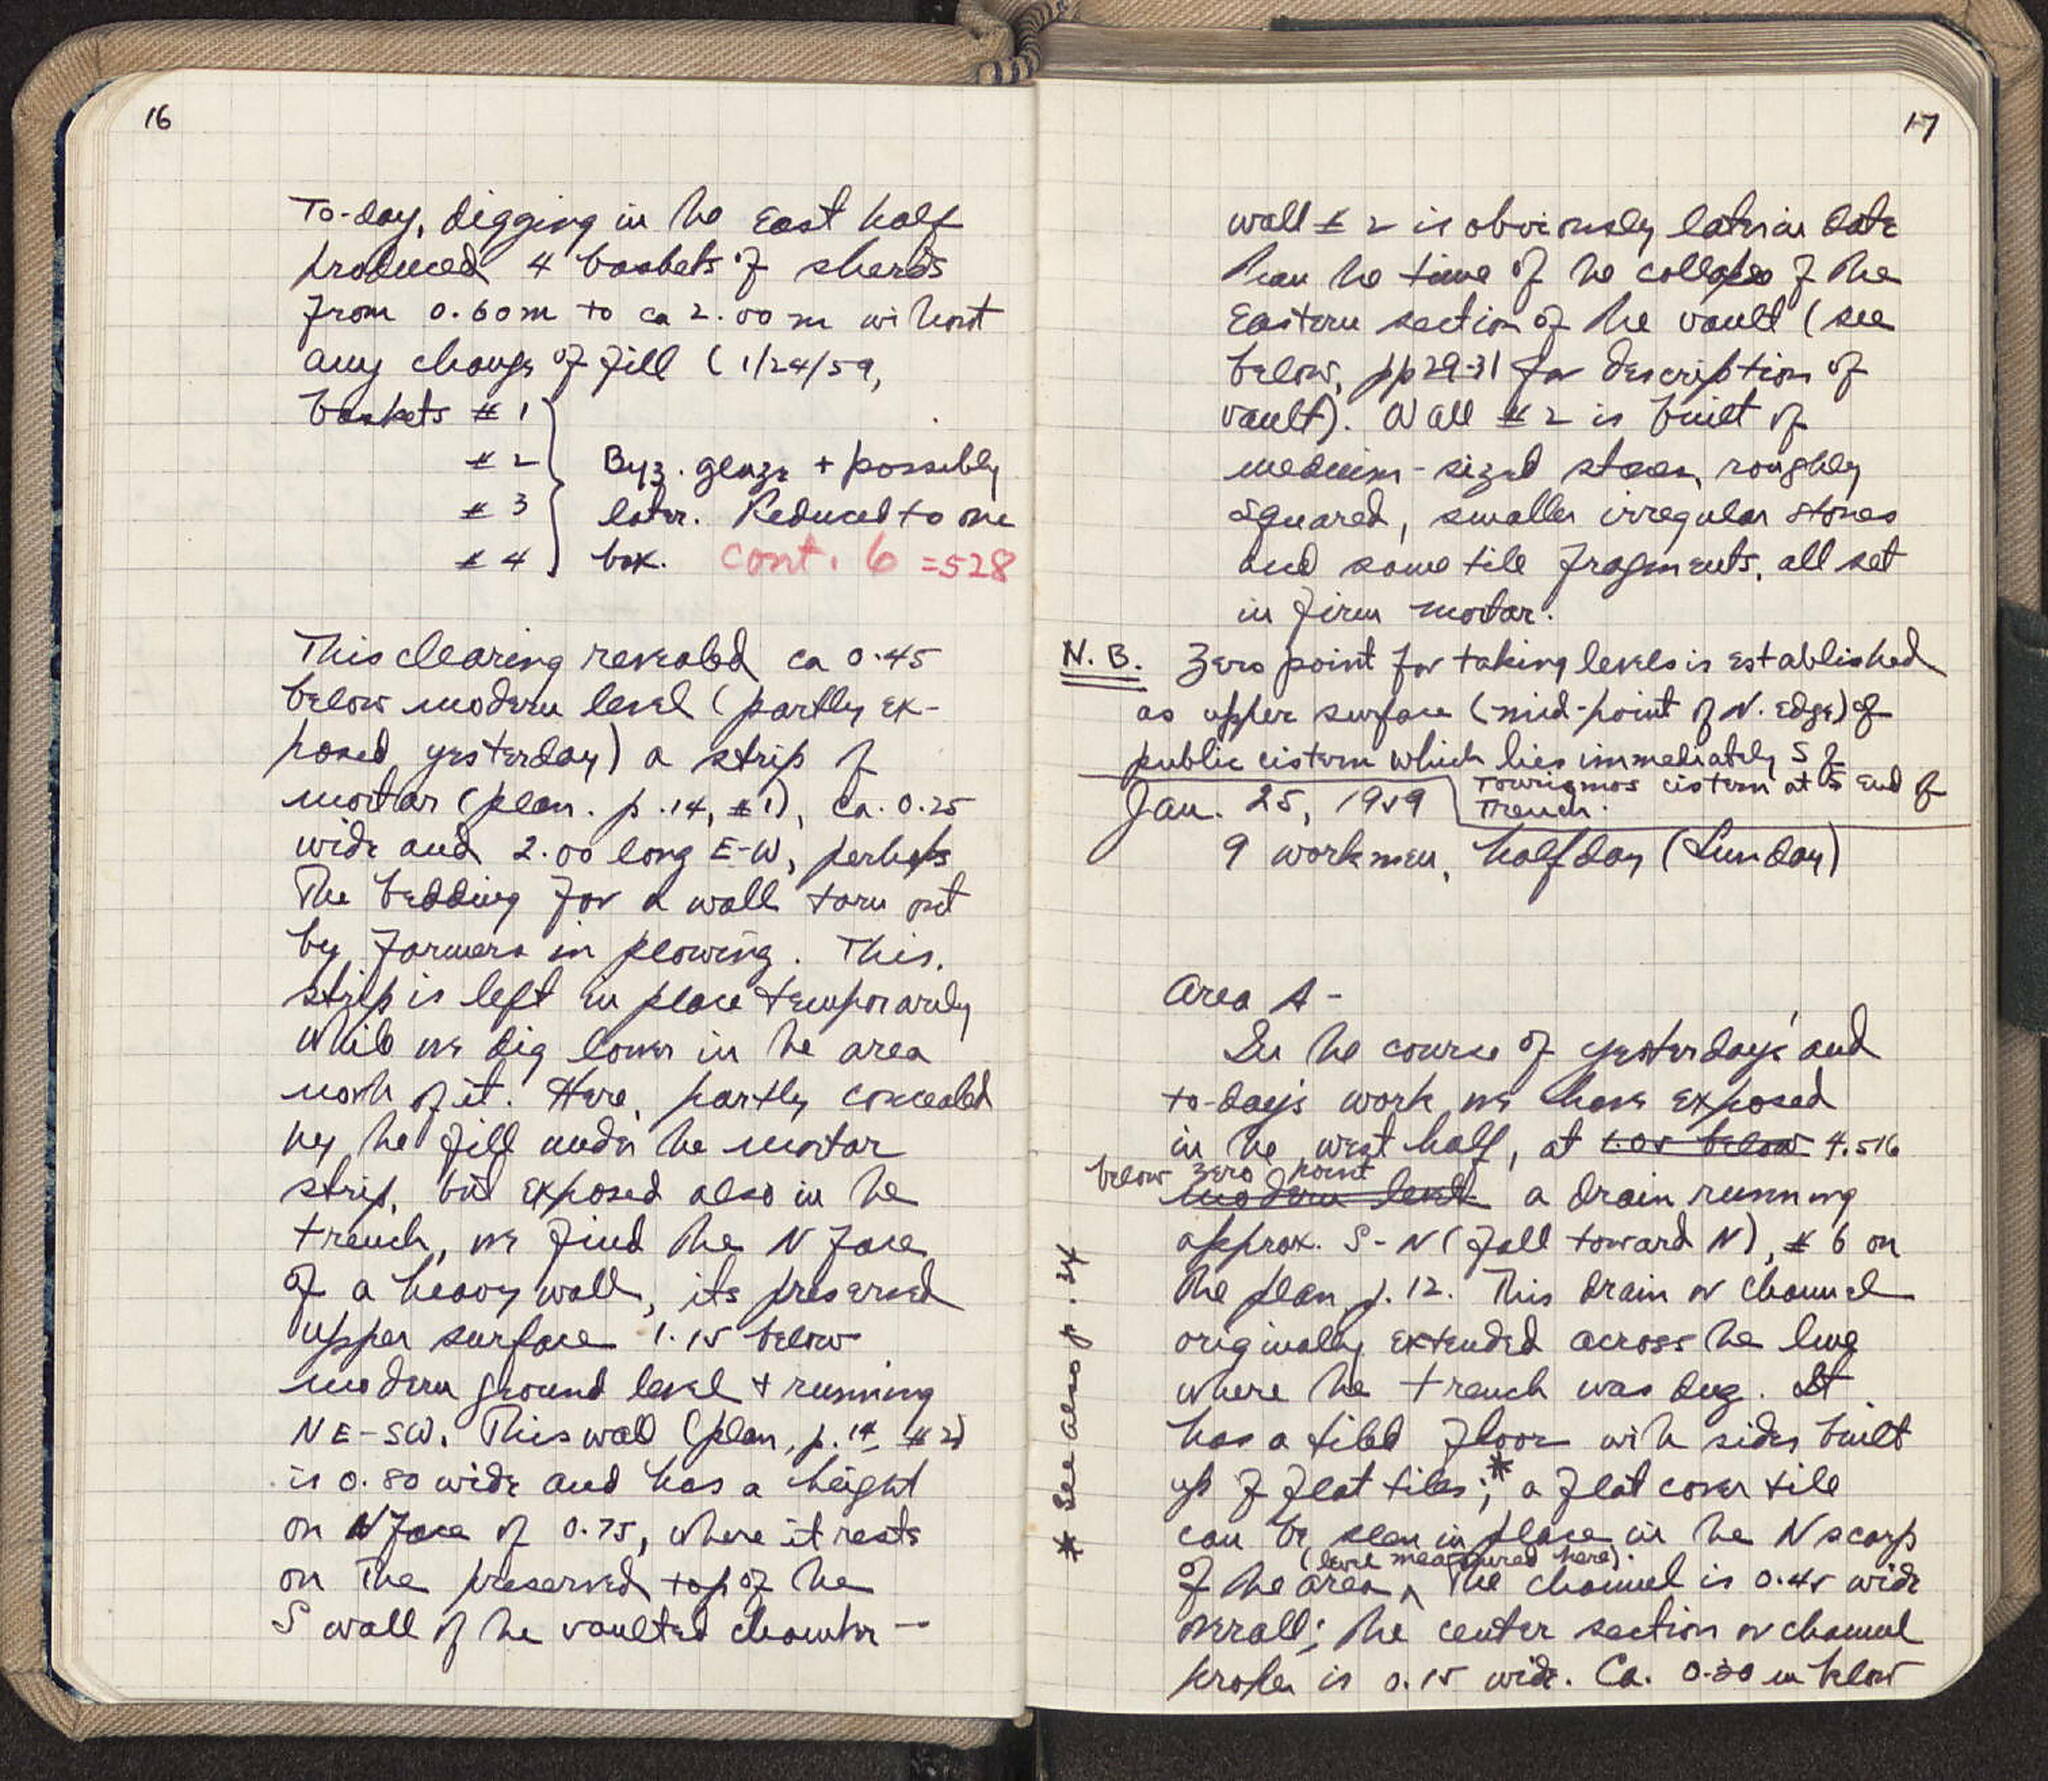 16
To-day, digging in the East half
produced 4 baskets of sherds
from 0.60m to ca 2.00m without
any change of fill (1/24/59,
baskets #1
#2 Byz. glaze + possibly
#3 later. Reduced to one
#4 box. Cont. 6 = 528
This clearing revealed ca 0.45
below modern level (partly ex-
posed yesterday) a strip of
mortar (plan. p.14, #1), ca. 0.25
wide and 2.00 long E-W, perhaps
the bedding for a wall torn out
by farmers in plowing. This
strip is left in place temporarily
while we dig lower in the area
north of it. Here, partly concealed
by the fill under the mortar
strip, but exposed also in the
trench, we find the N face
of a heavy wall, its preserved
upper surface 1.15 below
modern ground level + running
NE-SW. This wall (plan, p. 14, #2)
is 0.80 wide and has a height
on N face of 0.75, where it rests
on the preserved top of the
S wall of the vaulted chamber --
17
wall #2 is obviously later in date
than the time of the collapse of the
Eastern section of the vault (see
below, pp 29-31 for description of
vault). Wall #2 is built of
medium-sized stones, roughly
squared, smaller irregular stones
and some tile fragments, all set
in firm mortar.
N.B. Zero point for taking levels is established
as upper surface (mid-point of N. edge) of
public cistern which lies immediately S of
Tourismos cistern at S end of
Trench.
Jan. 25, 1959
9 workmen, half day (Sunday)
Area A -
In the course of yesterday's and
to-day's work we have exposed
in the west half, at 1.05 below 4.516
below zero point
modern level a drain running
approx. S-N (fall toward N), #6 on
the plan p. 12. This drain or channel
originally extended across the line
where the trench was dug. It
has a tiled floor with sides built
up of flat tiles;* a flat cover tile
can be seen in place in the N scarp
(level measured here).
of the area ^ The channel is 0.45 wide
overall; the center section or channel
proper is 0.15 wide. Ca. 0.30 m below
* See also p. 34